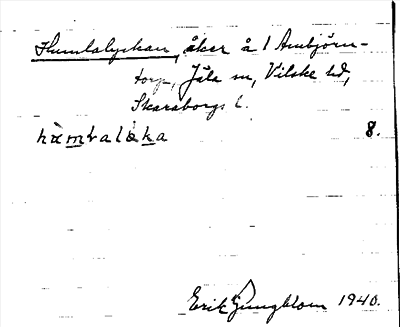 Humlalyckan, åker å 1 Ambjörn-
torp, Jäla sn, Vilske hd,
Skaraborgs l.
hàmbaláka 8.
Erik Ljungblom 1940.